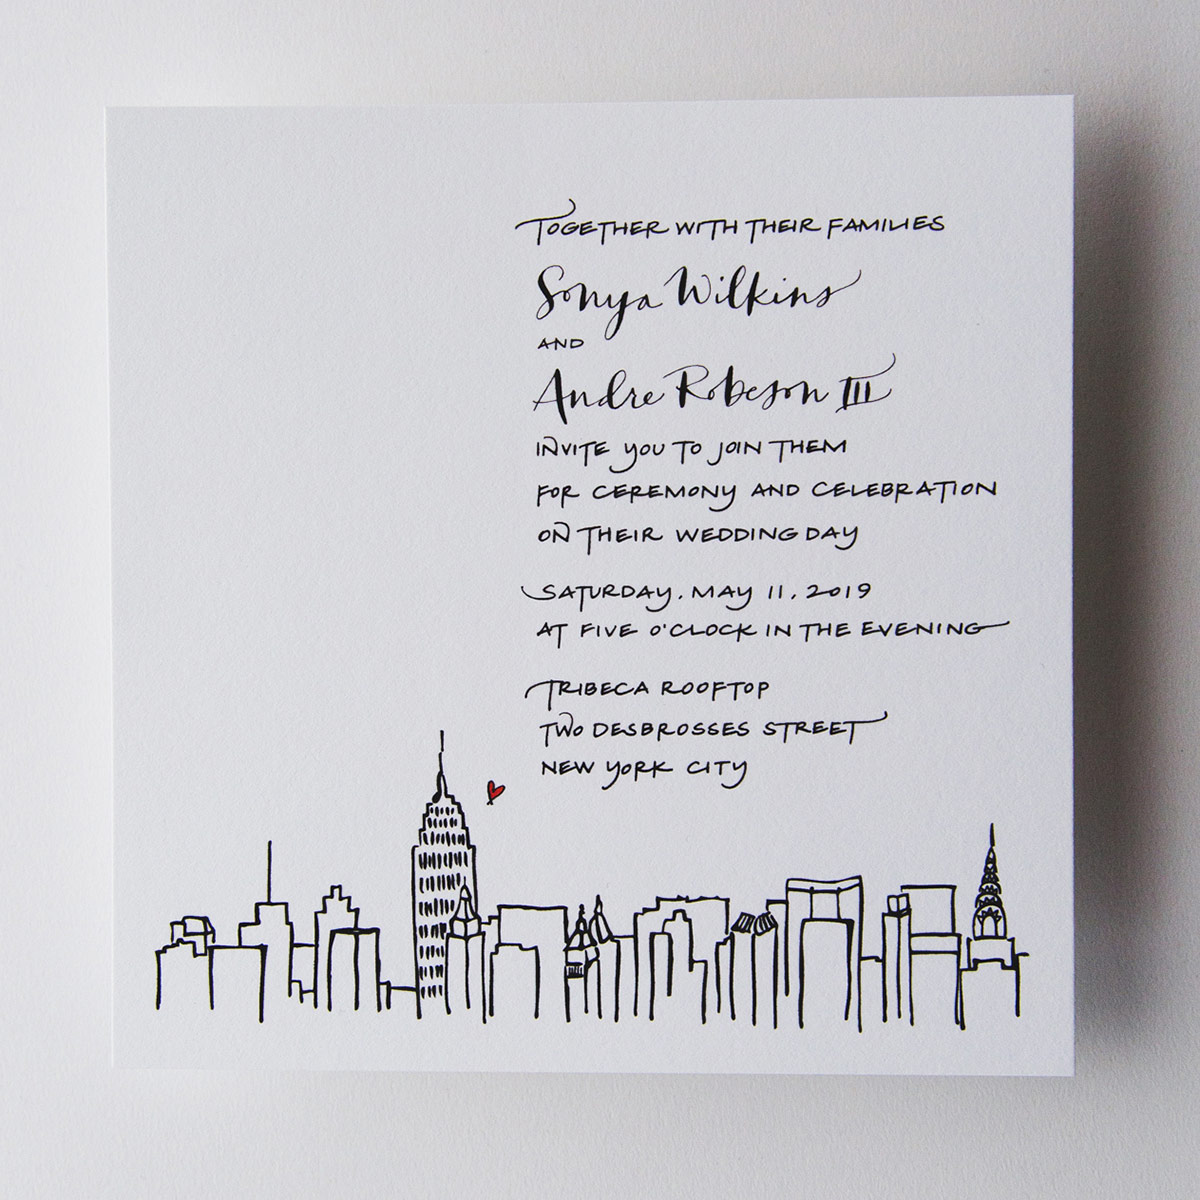 TOGETHER WITH THEIR FAMILIES
Sonya Wilkins
AND
Andre Robeson III
INVITE YOU TO JOIN THEM
FOR CEREMONY AND CELEBRATION
ON THEIR WEDDING DAY
SATURDAY, MAY 11, 2019
AT FIVE O'CLOCK IN THE EVENING
TRIBECA ROOFTOP
TWO DESBROSSES STREET
NEW YORK CITY